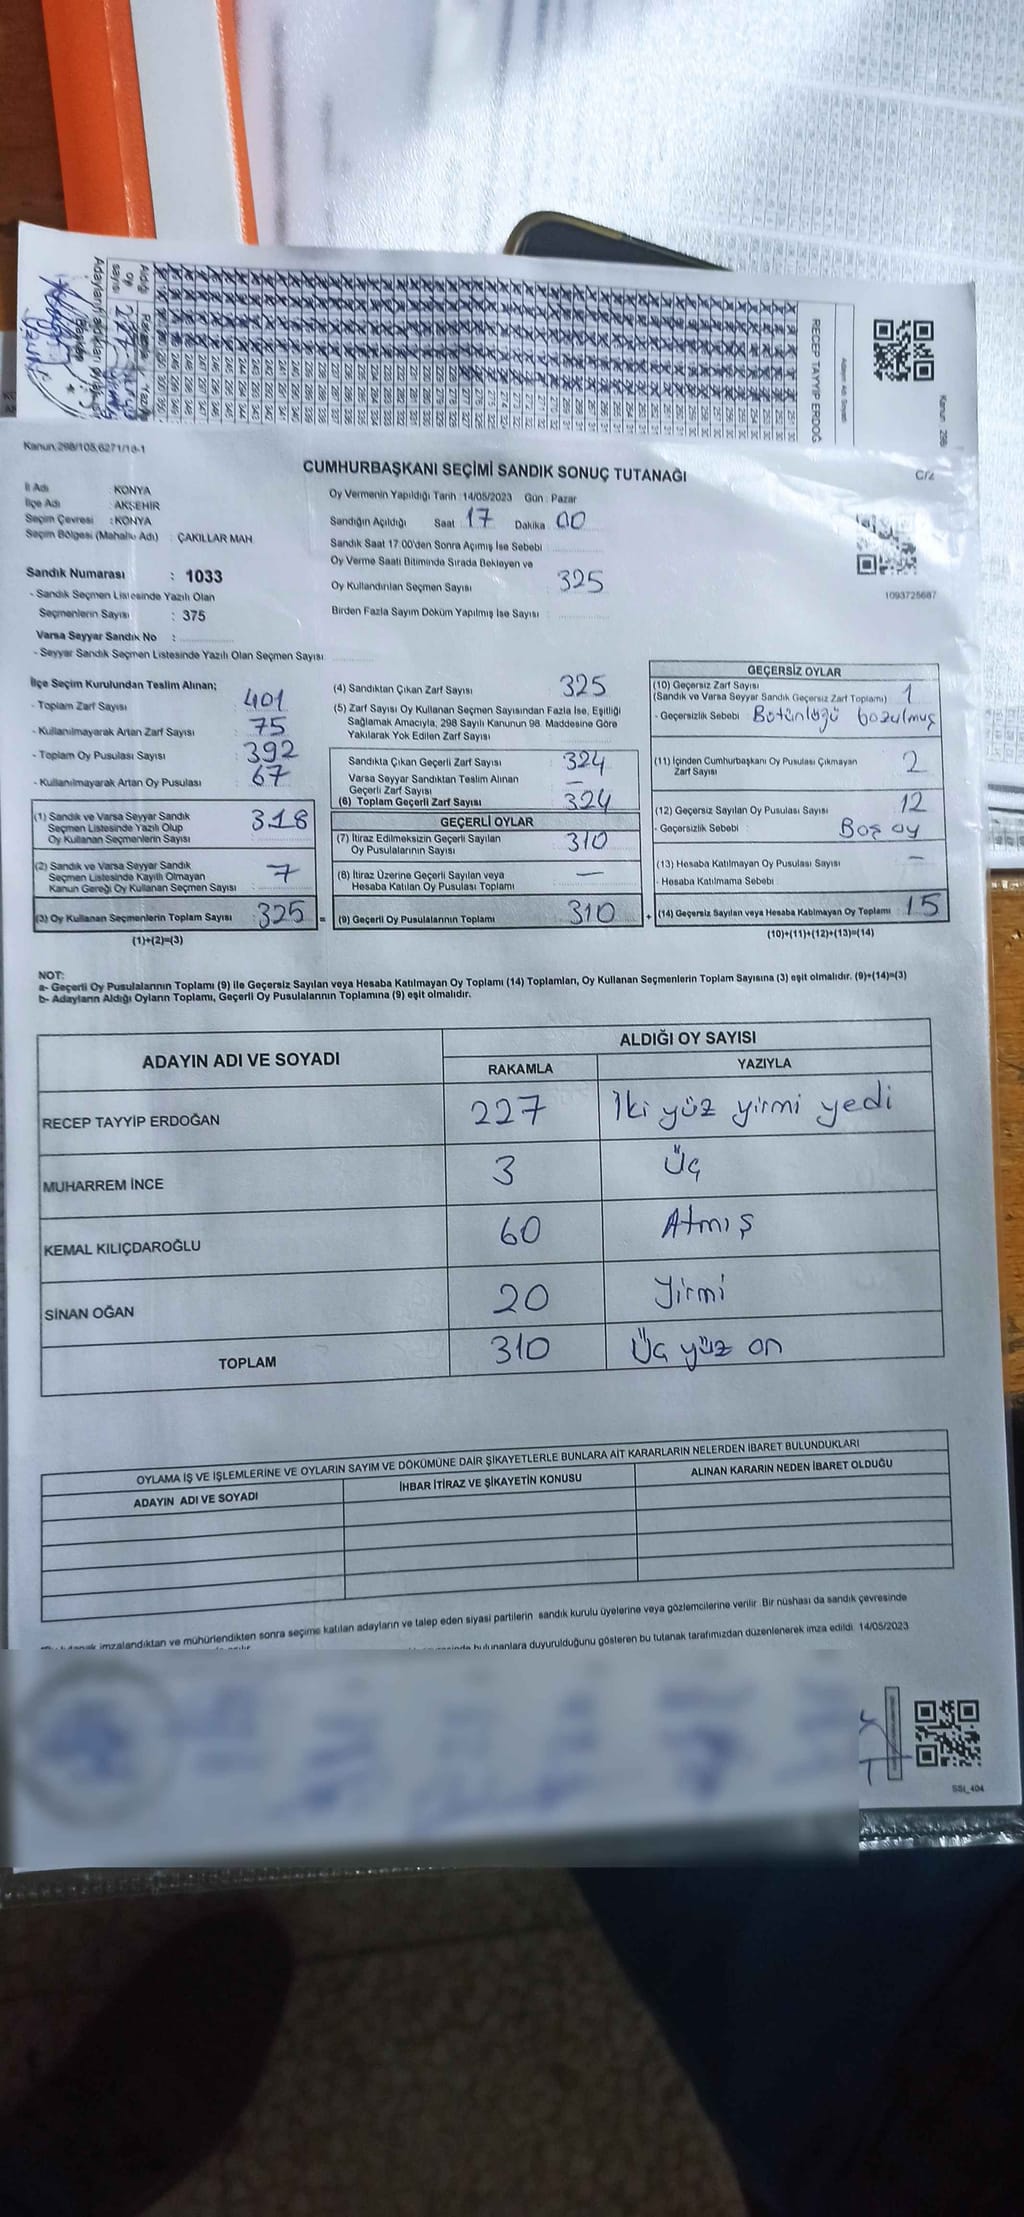 RECEP TAYYİP ERDOĞ
Adayın Adı Soyadı
Kanun 298/
Kanun:298/105,6271/18-1
CUMHURBAŞKANI SEÇİMİ SANDIK SONUÇ TUTANAĞI
C/2
İl Adı : KONYA
İlçe Adı : AKŞEHİR
Seçim Çevresi : KONYA
Seçim Bölgesi (Mahalle Adı) : ÇAKILLAR MAH
Sandık Numarası : 1033
- Sandık Seçmen Listesinde Yazılı Olan
Seçmenlerin Sayısı : 375
Varsa Seyyar Sandık No :
- Seyyar Sandık Seçmen Listesinde Yazılı Olan Seçmen Sayısı
Oy Vermenin Yapıldığı Tarih : 14/05/2023 Gün : Pazar
Sandığın Açıldığı Saat : 17 Dakika : 00
Sandık Saat 17.00'den Sonra Açımış İse Sebebi :
Oy Verme Saati Bitiminde Sırada Bekleyen ve
Oy Kullandırılan Seçmen Sayısı : 325
Birden Fazla Sayım Döküm Yapılmış İse Sayısı :
1093725687
İlçe Seçim Kurulundan Teslim Alınan;
- Toplam Zarf Sayısı : 401
- Kullanılmayarak Artan Zarf Sayısı : 75
- Toplam Oy Pusulası Sayısı : 392
- Kullanılmayarak Artan Oy Pusulası : 67
(1) Sandık ve Varsa Seyyar Sandık
Seçmen Listesinde Yazılı Olup
Oy Kullanan Seçmenlerin Sayısı : 318
(2) Sandık ve Varsa Seyyar Sandık
Seçmen Listesinde Kayıtlı Olmayan
Kanun Gereği Oy Kullanan Seçmen Sayısı : 7
(3) Oy Kullanan Seçmenlerin Toplam Sayısı : 325 =
(1)+(2)=(3)
(4) Sandıktan Çıkan Zarf Sayısı : 325
(5) Zarf Sayısı Oy Kullanan Seçmen Sayısından Fazla İse, Eşitliği
Sağlamak Amacıyla, 298 Sayılı Kanunun 98. Maddesine Göre
Yakılarak Yok Edilen Zarf Sayısı :
Sandıkta Çıkan Geçerli Zarf Sayısı : 324
Varsa Seyyar Sandıktan Teslim Alınan
Geçerli Zarf Sayısı : —
(6) Toplam Geçerli Zarf Sayısı : 324
GEÇERLİ OYLAR
(7) İtiraz Edilmeksizin Geçerli Sayılan
Oy Pusulalarının Sayısı : 310
(8) İtiraz Üzerine Geçerli Sayılan veya
Hesaba Katılan Oy Pusulası Toplamı : —
(9) Geçerli Oy Pusulalarının Toplamı : 310 +
GEÇERSİZ OYLAR
(10) Geçersiz Zarf Sayısı
(Sandık ve Varsa Seyyar Sandık Geçersiz Zarf Toplamı) : 1
- Geçersizlik Sebebi : Bütünlüğü bozulmuş
(11) İçinden Cumhurbaşkanı Oy Pusulası Çıkmayan
Zarf Sayısı : 2
(12) Geçersiz Sayılan Oy Pusulası Sayısı : 12
- Geçersizlik Sebebi : Boş oy
(13) Hesaba Katılmayan Oy Pusulası Sayısı : —
- Hesaba Katılmama Sebebi :
(14) Geçersiz Sayılan veya Hesaba Katılmayan Oy Toplamı : 15
(10)+(11)+(12)+(13)=(14)
NOT:
a- Geçerli Oy Pusulalarının Toplamı (9) ile Geçersiz Sayılan veya Hesaba Katılmayan Oy Toplamı (14) Toplamları, Oy Kullanan Seçmenlerin Toplam Sayısına (3) eşit olmalıdır. (9)+(14)=(3)
b- Adayların Aldığı Oyların Toplamı, Geçerli Oy Pusulalarının Toplamına (9) eşit olmalıdır.
ADAYIN ADI VE SOYADI ALDIĞI OY SAYISI
RAKAMLA YAZIYLA
RECEP TAYYİP ERDOĞAN 227 İki yüz yirmi yedi
MUHARREM İNCE 3 Üç
KEMAL KILIÇDAROĞLU 60 Atmış
SİNAN OĞAN 20 Yirmi
TOPLAM 310 Üç yüz on
OYLAMA İŞ VE İŞLEMLERİNE VE OYLARIN SAYIM VE DÖKÜMÜNE DAİR ŞİKAYETLERLE BUNLARA AİT KARARLARIN NELERDEN İBARET BULUNDUKLARI
ADAYIN ADI VE SOYADI İHBAR İTİRAZ VE ŞİKAYETİN KONUSU ALINAN KARARIN NEDEN İBARET OLDUĞU
imzalandıktan ve mühürlendikten sonra seçime katılan adayların ve talep eden siyasi partilerin sandık kurulu üyelerine veya gözlemcilerine verilir. Bir nüshası da sandık çevresinde
bulunanlara duyurulduğunu gösteren bu tutanak tarafımızdan düzenlenerek imza edildi. 14/05/2023
SSI_404